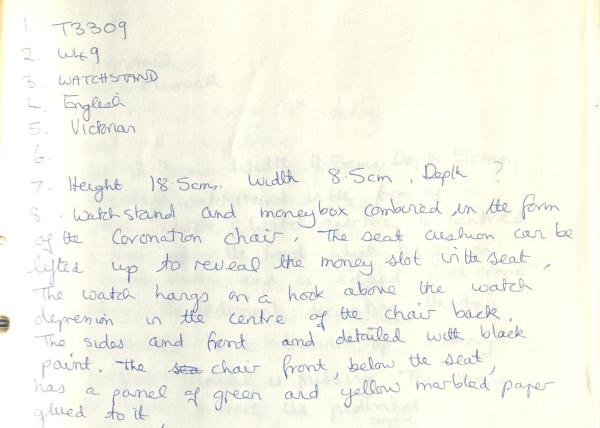 1. T3309
2. WK9
3. WATCHSTAND
4. English
5. Victorian
6.
7. Height 18.5cms. Width 8.5cm. Depth ?
8. Watch stand and moneybox combined in the form
of the Coronation chair. The seat cushion can be
lifted up to reveal the money slot in the seat.
The watch hangs on a hook above the watch
depression in the centre of the chair back.
The sides and front and detailed with black
paint. The chair front, below the seat,
has a panel of green and yellow marbled paper
glued to it.